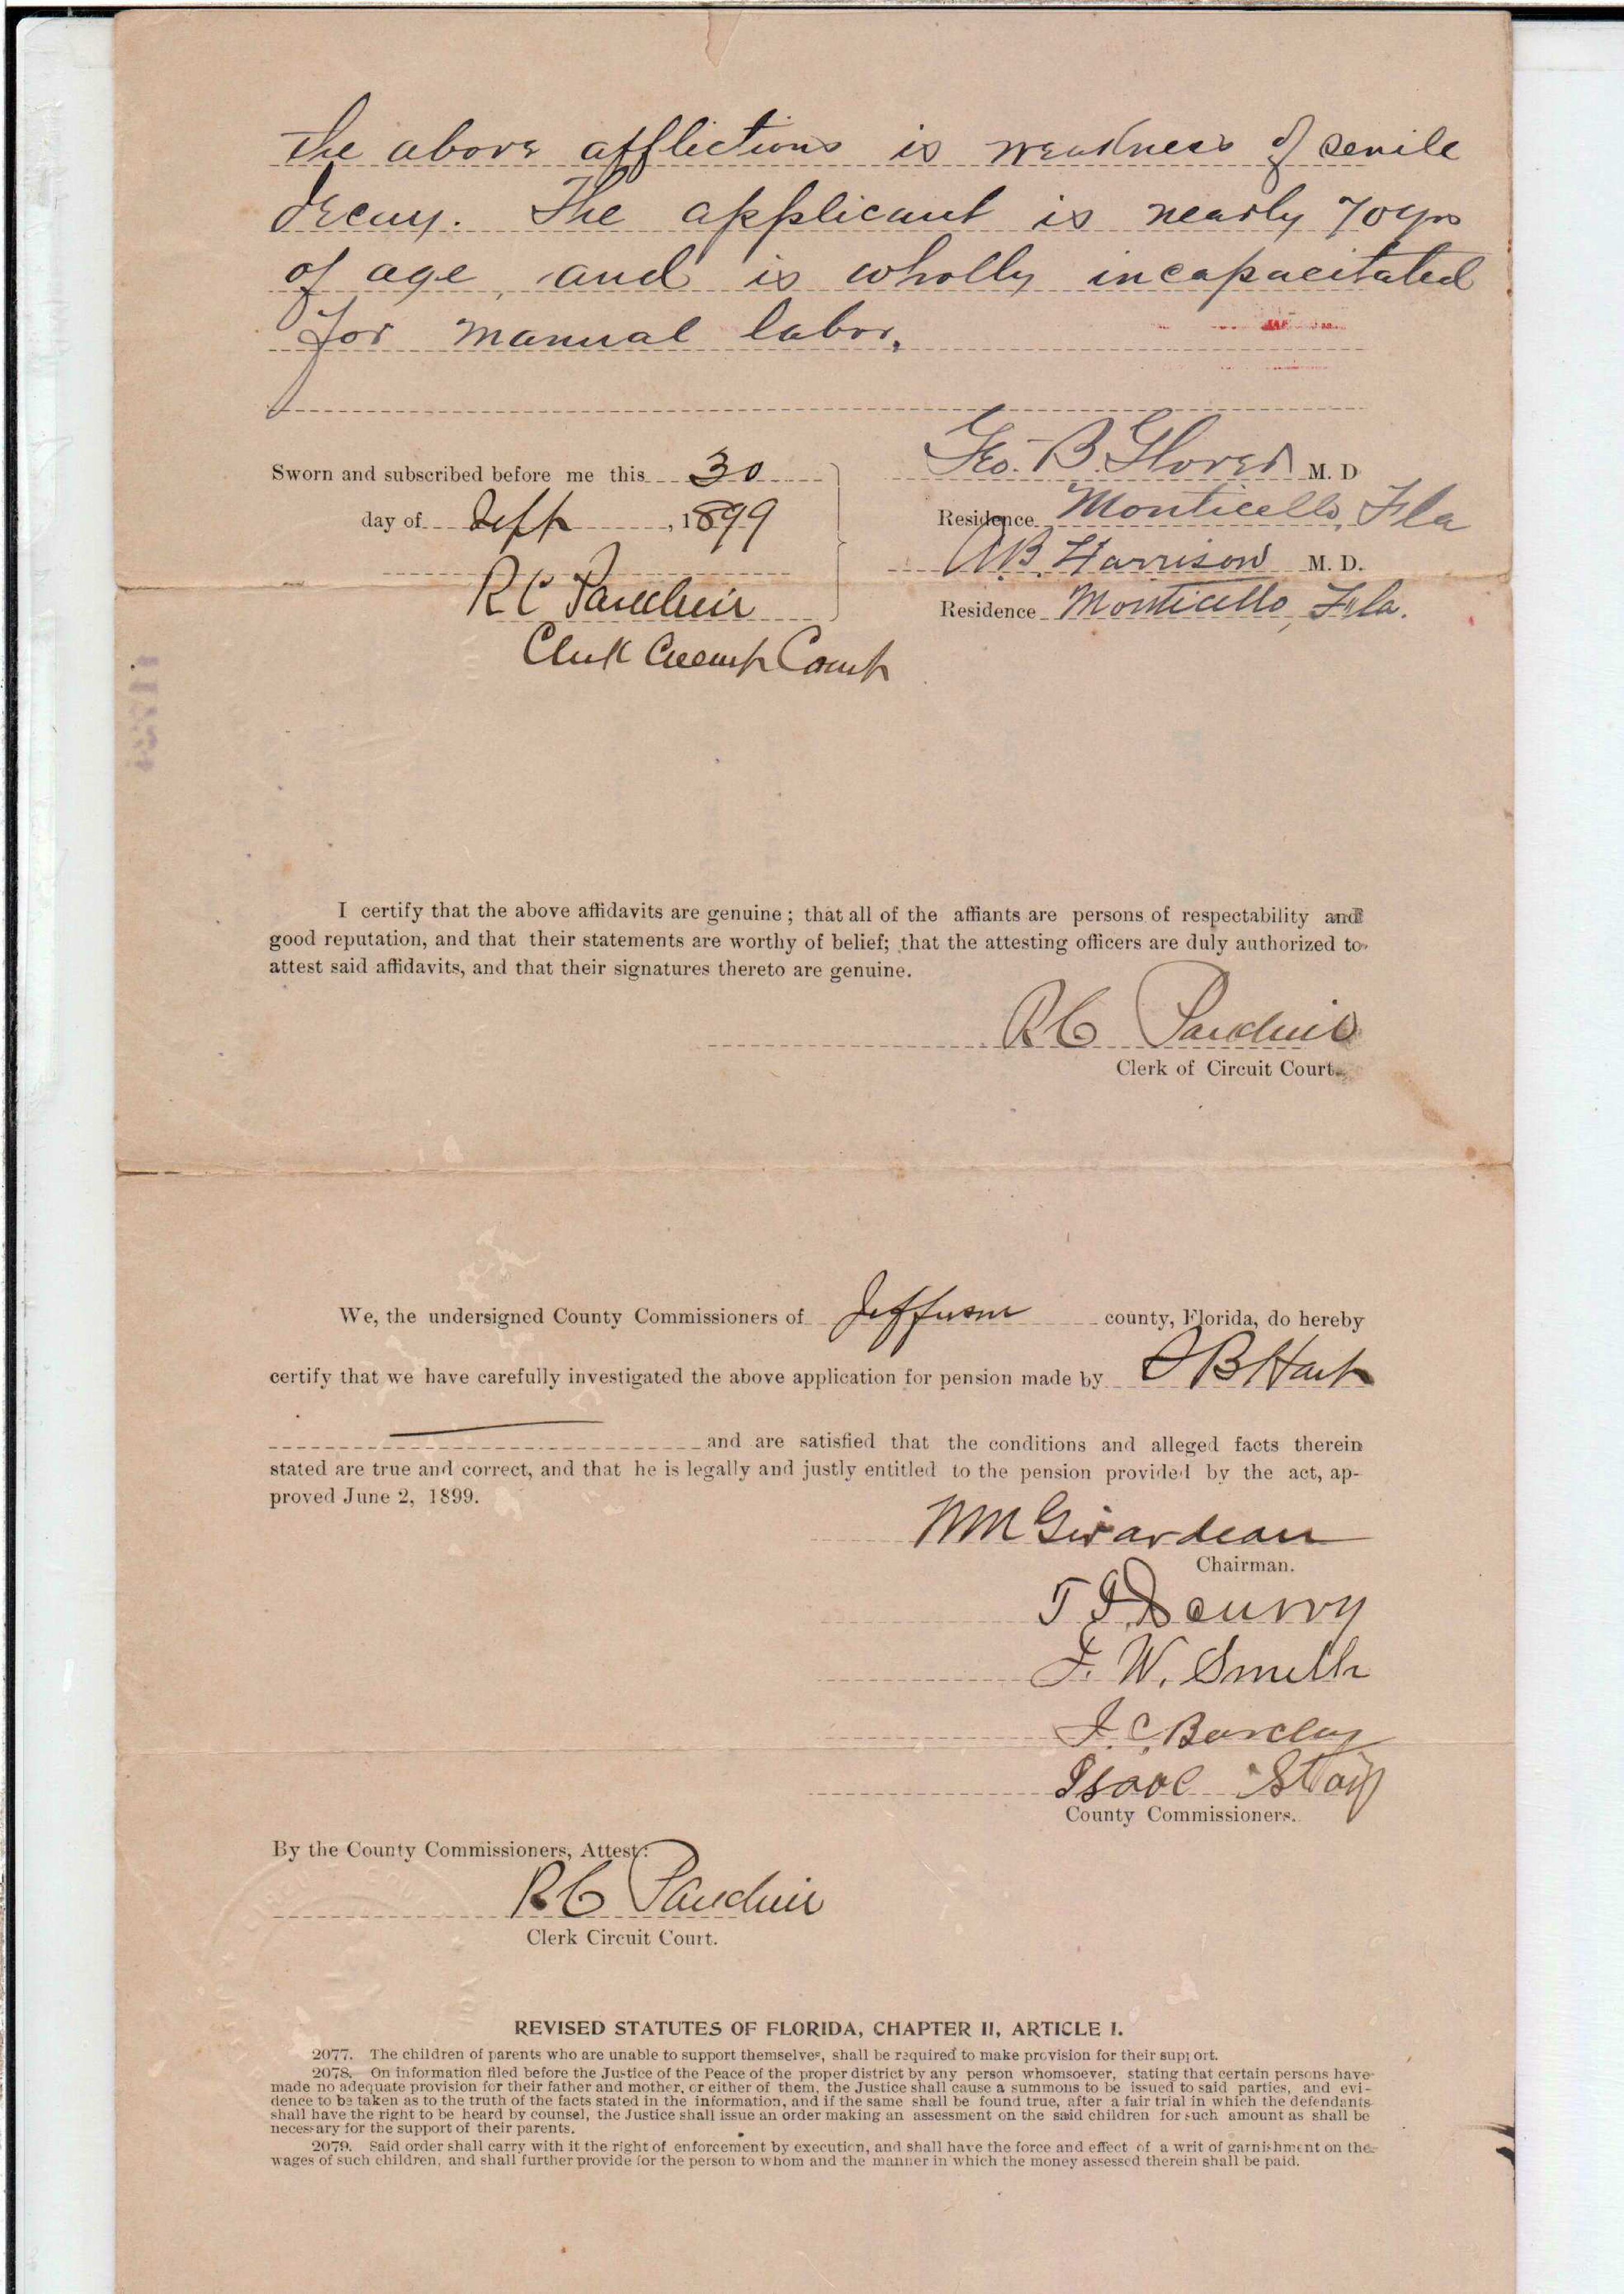 the above afflictions is weakness of senile
decay. The applicant is nearly 70 yrs
of age, and is wholly incapacitated
for manual labor.
Geo. B. Glover M. D
Sworn and subscribed before me this 30
Residence Monticello, Fla
day of Sept, 1899
A.B. Harrison M. D.
R C
Residence Monticello, Fla.
Clerk Circuit Court
I certify that the above affidavits are genuine; that all of the affiants are persons of respectability and
good reputation, and that their statements are worthy of belief; that the attesting officers are duly authorized to
attest said affidavits, and that their signatures thereto are genuine.
R C
Clerk of Circuit Court.
We, the undersigned County Commissioners of Jefferson county, Florida, do hereby
certify that we have carefully investigated the above application for pension made by B Hart
and are satisfied that the conditions and alleged facts therein
stated are true and correct, and that he is legally and justly entitled to the pension provided by the act, ap-
proved June 2, 1899.
W M Girardeau
Chairman.
T
W. Smith
J. C. Barclay
Isaac
County Commissioners.
By the County Commissioners, Attest:
R C
Clerk Circuit Court.
REVISED STATUTES OF FLORIDA, CHAPTER II, ARTICLE I.
2077. The children of parents who are unable to support themselves, shall be required to make provision for their support.
2078. On information filed before the Justice of the Peace of the proper district by any person whomsoever, stating that certain persons have
made no adequate provision for their father and mother, or either of them, the Justice shall cause a summons to be issued to said parties, and evi-
dence to be taken as to the truth of the facts stated in the information, and if the same shall be found true, after a fair trial in which the defendants
shall have the right to be heard by counsel, the Justice shall issue an order making an assessment on the said children for such amount as shall be
necessary for the support of their parents.
2079. Said order shall carry with it the right of enforcement by execution, and shall have the force and effect of a writ of garnishment on the
wages of such children, and shall further provide for the person to whom and the manner in which the money assessed therein shall be paid.